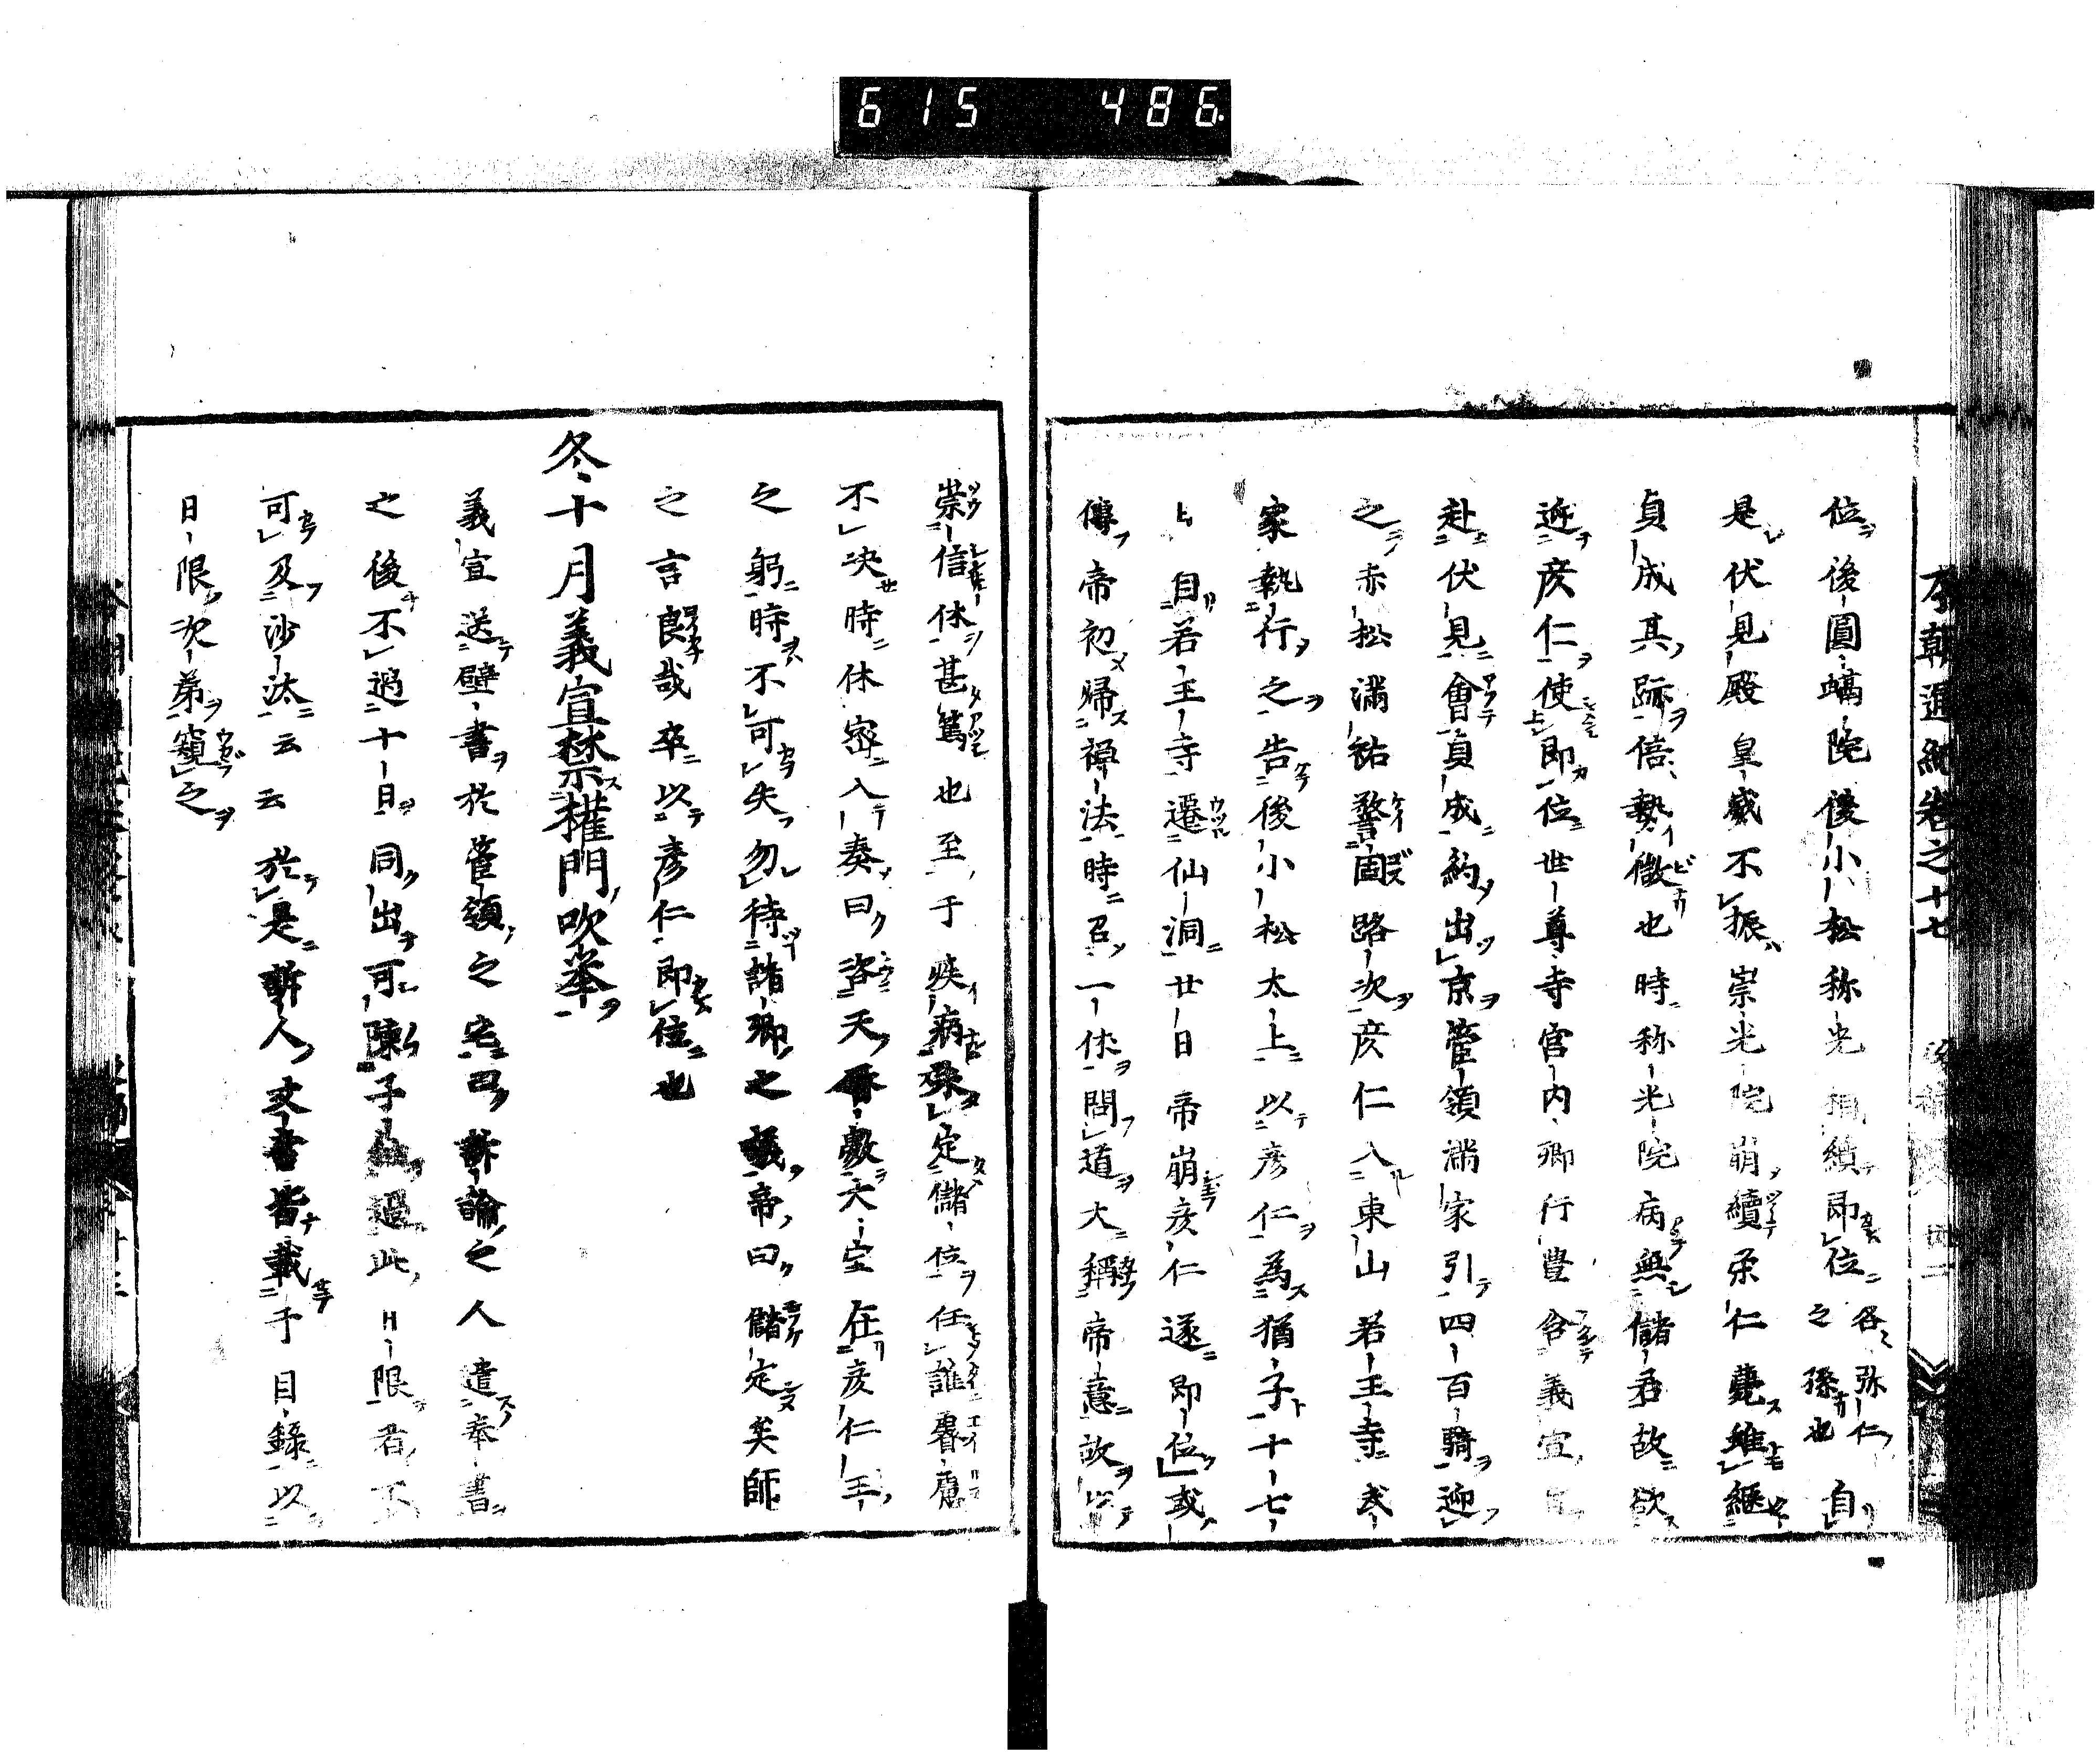 615 486.
本朝通紀卷之十七
位後圓螎院後小松称光相續即位各弥仁之孫也自
是伏見殿皇威不振崇光院崩續栄仁薨雖継
貞成其跡倍勢微也時称光院病無儲君故欲
迎彦仁使即位世尊寺宮内卿行豊含義宣
赴伏見會貞成約出京管領滿家引四百騎迎
之赤松滿祐警固路次彦仁入東山若王寺武
家執行之告後小松太上以彦仁為猶子十七
日自若王寺遷仙洞廿日帝崩彦仁遂即位或
傳帝初帰禅法時召一休問道大稱帝意故以
崇信休甚篤也至于疾病恭定儲位任誰睿慮
不决時休密入奏曰咨天暦數大宝在彦仁王
之躬時不可失勿待諸卿之議帝曰儲定矣師
之言餘哉卒以彦仁即位也
冬十月義宣禁權門吹举
義宣送壁書於管領之宅曰訴論之人遣奉書
之後不過十日同出可陳子過此日限者不
可及沙汰云云於是訴人文書皆載于目錄以
日限次第窺之